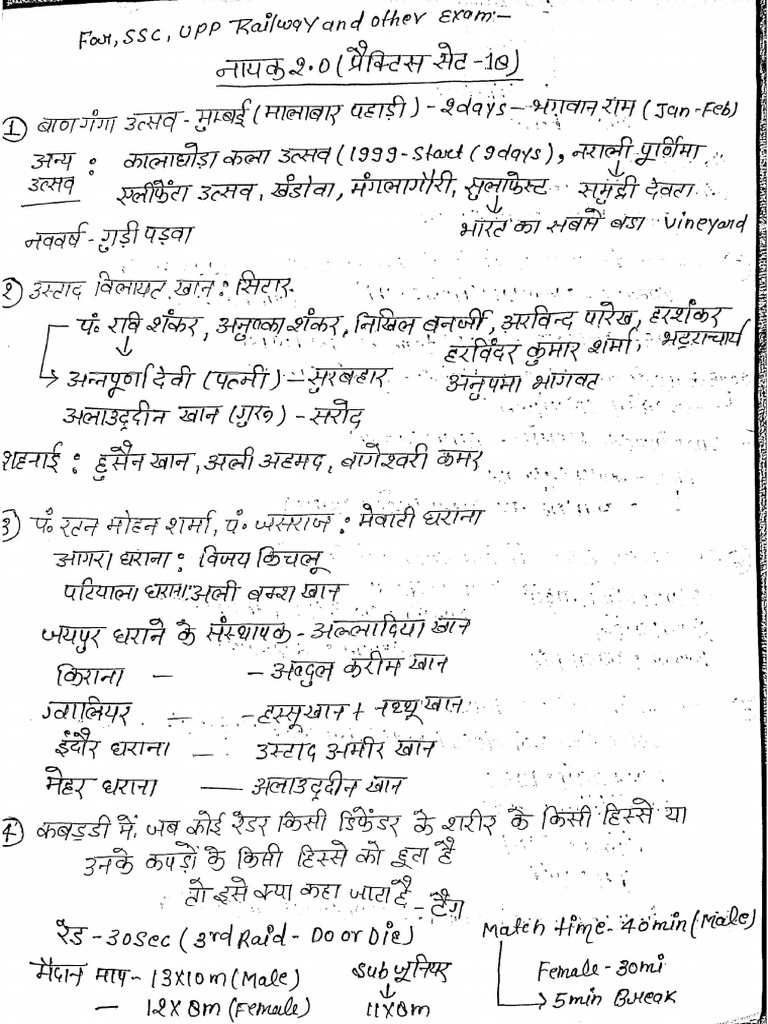 For, SSC, UPP Railway and other Exam:-
नायक 2.0 (प्रैक्टिस सेट -10)
1) बाणगंगा उत्सव - मुम्बई (मालाबार पहाड़ी) - 2days - भगवान राम (Jan-Feb)
अन्य उत्सव : कालाघोड़ा कला उत्सव (1999-Start (9days), नराली पूर्णिमा
↓
एलीफेंटा उत्सव, खंडोवा, मंगलागौरी, सुलाफेस्ट समुद्री देवता
↓
नववर्ष - गुड़ी पड़वा भारत का सबसे बड़ा vineyard
2) उस्ताद विलायत खान : सितार
पं. रवि शंकर, अनुष्का शंकर, निखिल बनर्जी, अरविन्द पारेख, हरशंकर भट्टाचार्य
↓ हरविंदर कुमार शर्मा,
→ अन्नपूर्णा देवी (पत्नी) - सुरबहार अनुपमा भागवत
अलाउद्दीन खान (गुरु) - सरोद
शहनाई : हुसैन खान, अली अहमद, बागेश्वरी कमर
3) पं. रतन मोहन शर्मा, पं. जसराज : मेवाती घराना
आगरा घराना : विजय किचलू
पटियाला घराना: अली बक्श खान
जयपुर घराने के संस्थापक - अल्लादिया खान
किराना - - अब्दुल करीम खान
ग्वालियर - - हस्सू खान + नत्थू खान
इंदौर घराना - उस्ताद अमीर खान
मेहर घराना - अलाउद्दीन खान
4) कबड्डी में, जब कोई रेडर किसी डिफेंडर के शरीर के किसी हिस्से या
उनके कपड़ों के किसी हिस्से को छूता है
तो इसे क्या कहा जाता है - टैग
रेड - 30Sec (3rd Raid - Do or Die) Match time - 40min (Male)
मैदान माप - 13X10m (Male) Sub जूनियर Female - 30mi
↓ → 5min Break
- 12X8m (Female) 11X8m